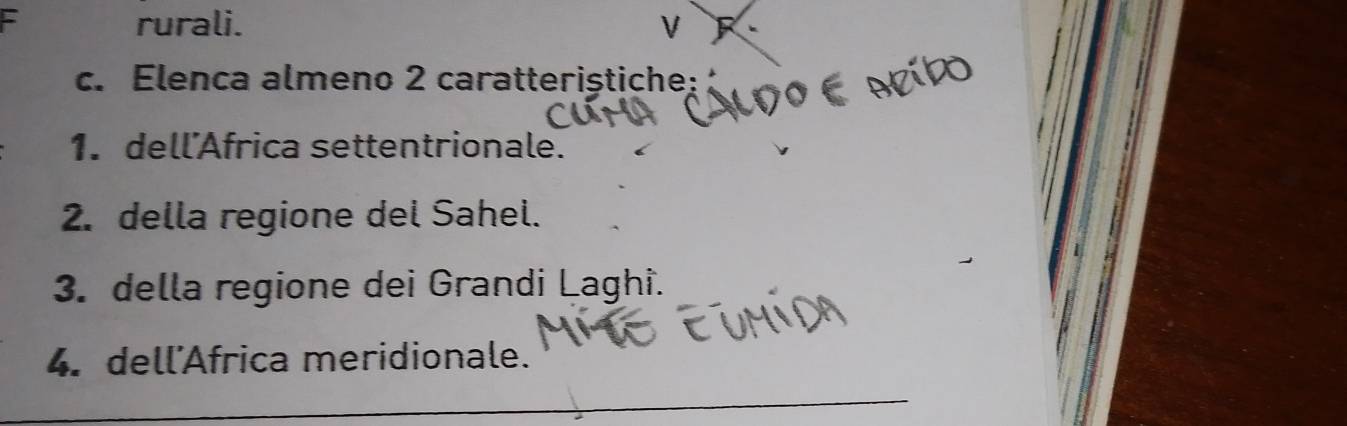 F rurali. V F.
c. Elenca almeno 2 caratteristiche:
CLIMA CALDO E ARIDO
1. dell'Africa settentrionale.
2. della regione del Sahel.
3. della regione dei Grandi Laghi.
MITE E UMIDA
4. dell'Africa meridionale.